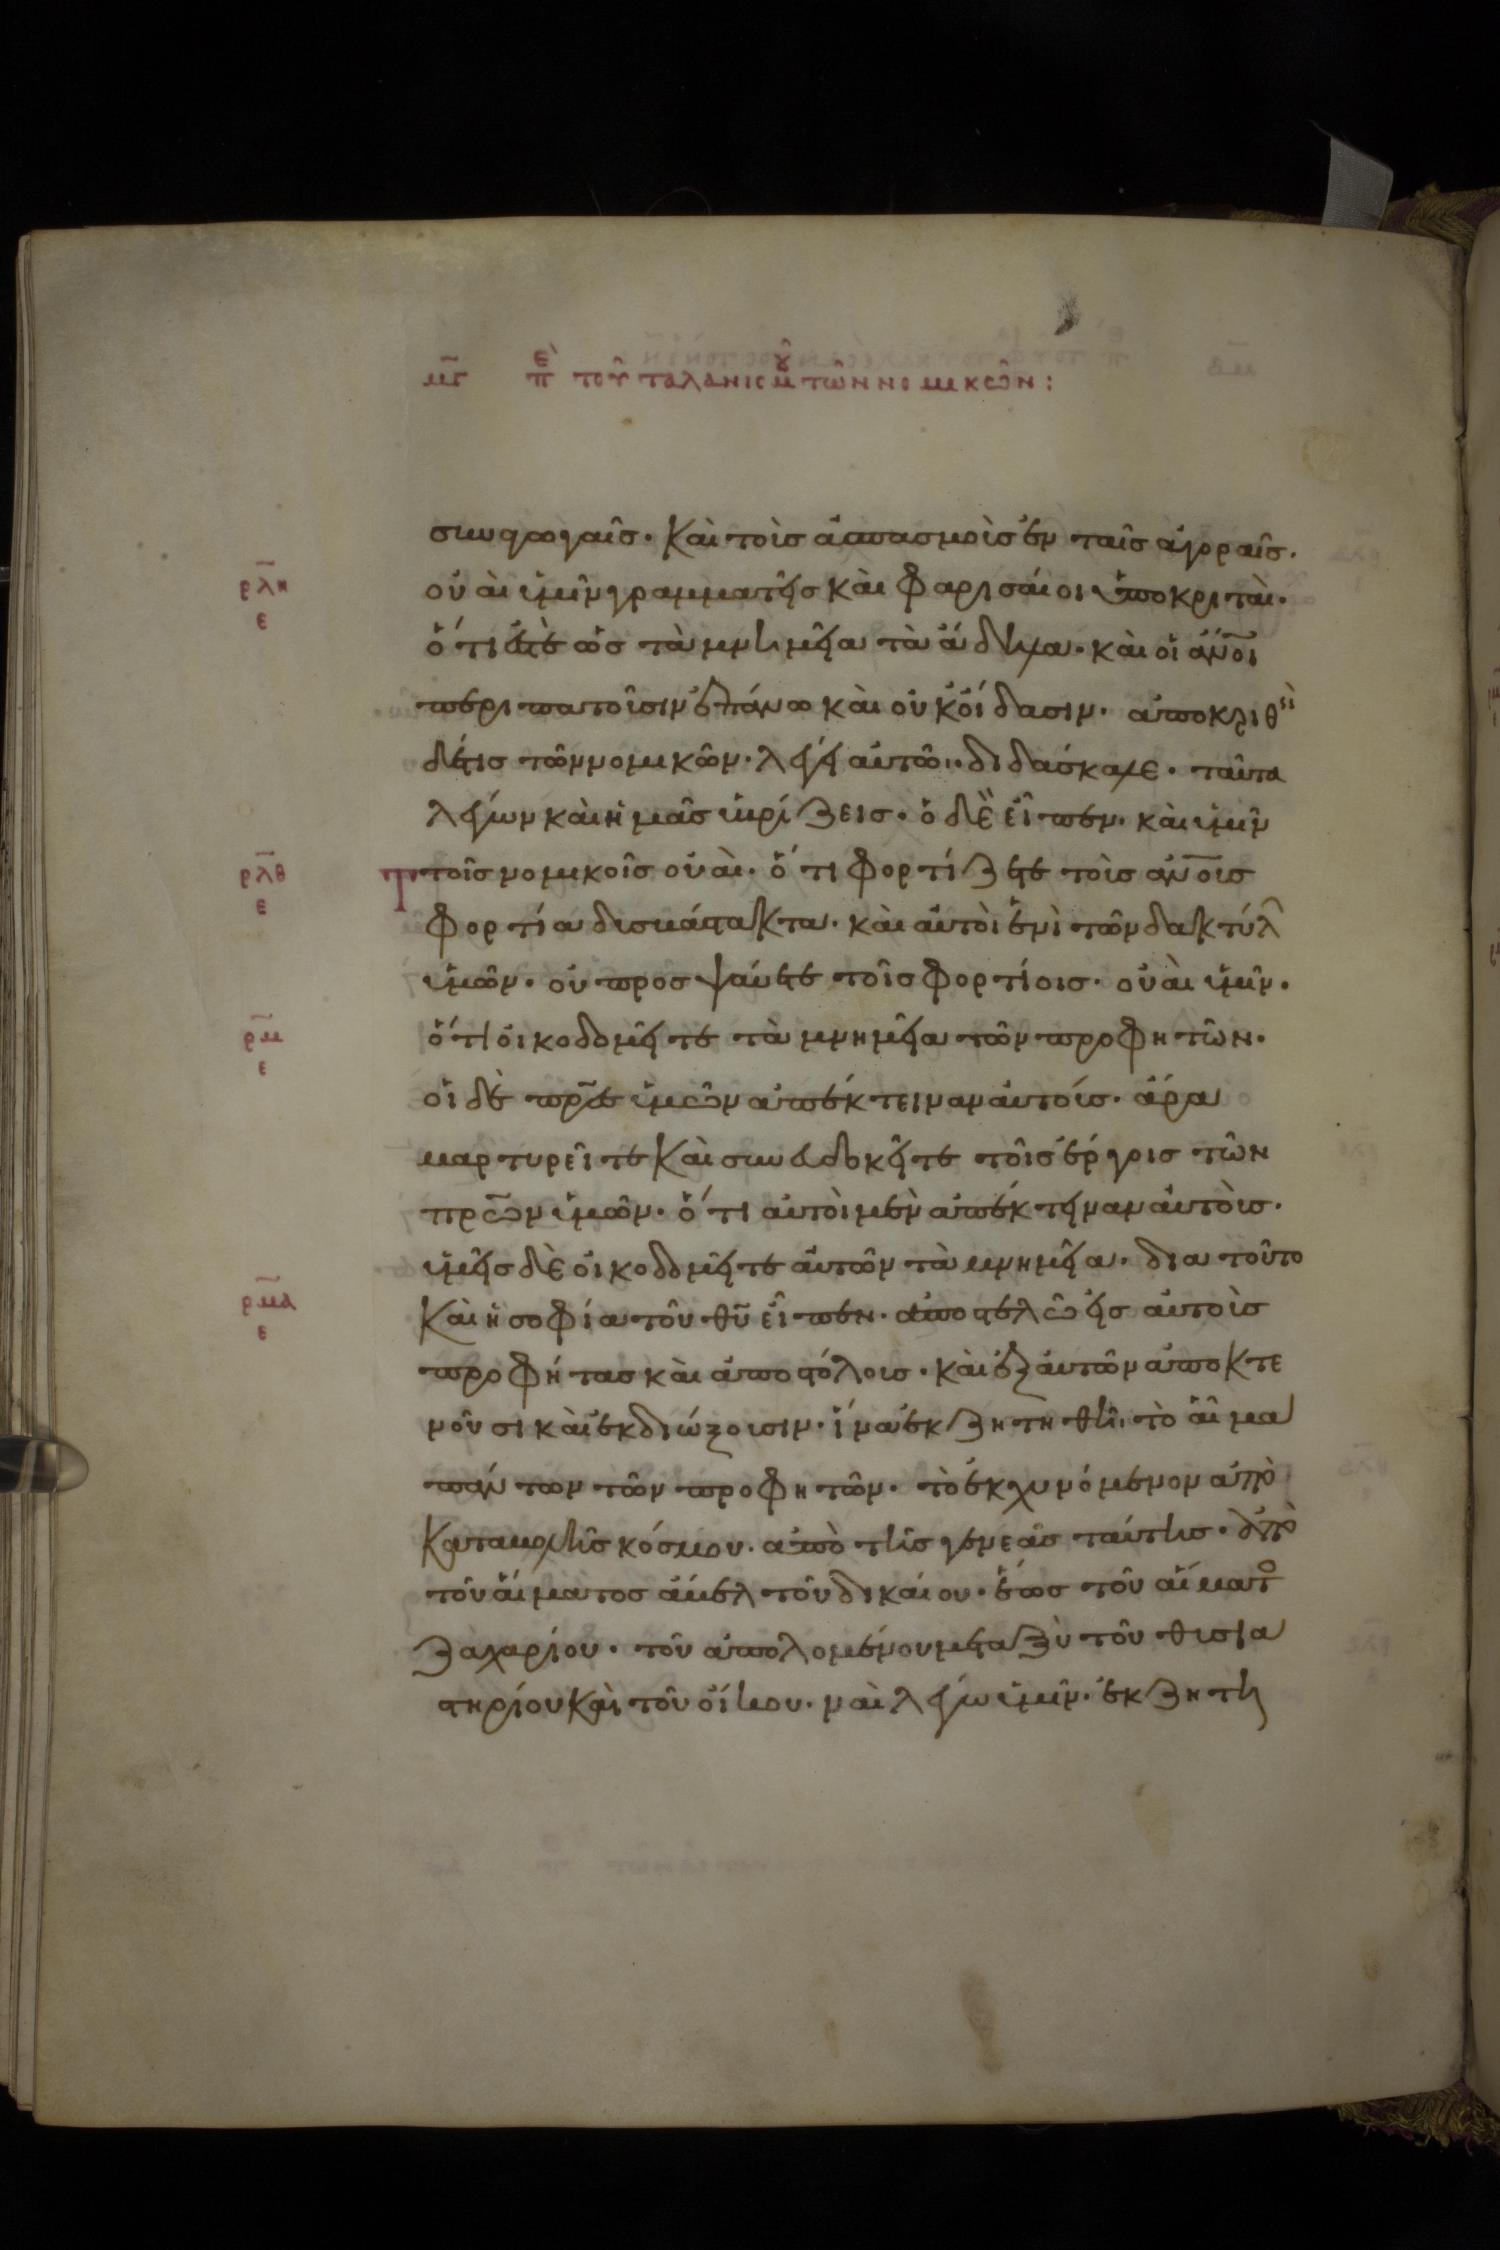 μγ πε τοῦ ταλανισμοῦ τῶν νομικῶν:
συναγωγαῖς. καὶ τοὺς ἀσπασμοὺς ἐν ταῖς ἀγοραῖς.
ρλη ε
οὐαὶ ὑμῖν γραμματεῖς καὶ φαρισαῖοι ὑποκριταὶ.
ὅτι ἐστὲ ὡς τὰ μνημεῖα τὰ ἄδηλα. καὶ οἱ ἄνοι
περιπατοῦσιν ἐπάνω καὶ οὐκ οἴδασιν. ἀποκριθεὶ
δέ τις τῶν νομικῶν. λέγει αὐτῶ. διδάσκαλε. ταῦτα
λέγων καὶ ἡμᾶς ὑβρίζεις. ὁ δὲ εἶπεν. καὶ ὑμῖν
ρλθ ε
τοῖς νομικοῖς οὐαὶ. ὅτι φορτίζετε τοὺς ἀνους
φορτία δυσβάστακτα. καὶ αὐτοὶ ἑνὶ τῶν δακτύλ
ὑμῶν. οὐ προσψαύετε τοῖς φορτίοις. οὐαὶ ὑμῖν.
ρμ ε
ὅτι οἰκοδομεῖτε τὰ μνημεῖα τῶν προφητῶν.
οἱ δὲ πρες ὑμῶν ἀπέκτειναν αὐτούς. ἄρα
μαρτυρεῖτε καὶ συνευδοκεῖτε τοῖς ἔργοις τῶν
πρων ὑμῶν. ὅτι αὐτοὶ μὲν ἀπέκτειναν αὐτοὺς.
ὑμεῖς δὲ οἰκοδομεῖτε αὐτῶν τὰ μνημεῖα. δια τοῦτο
ρμα ε
καὶ ἡ σοφία τοῦ θυ εἶπεν. ἀποστελῶ εἰς αὐτοὺς
προφήτας καὶ ἀποστόλους. καὶ ἐξ αὐτῶν ἀποκτε
νοῦσι καὶ ἐκδιώξουσιν. ἵνα ἐκζητηθῆ τὸ αἷμα
πάντων τῶν προφητῶν. τὸ ἐκχυνόμενον ἀπὸ
καταβολῆς κόσμου. ἀπὸ τῆς γενεᾶς ταύτης. ἀπὸ
τοῦ αἵματος ἄβελ τοῦ δικαίου. ἕως τοῦ αἵματο
ζαχαρίου. τοῦ ἀπολομένου μεταξὺ τοῦ θυσια
στηρίου καὶ τοῦ οἴκου. ναὶ λέγω ὑμῖν. ἐκζητη